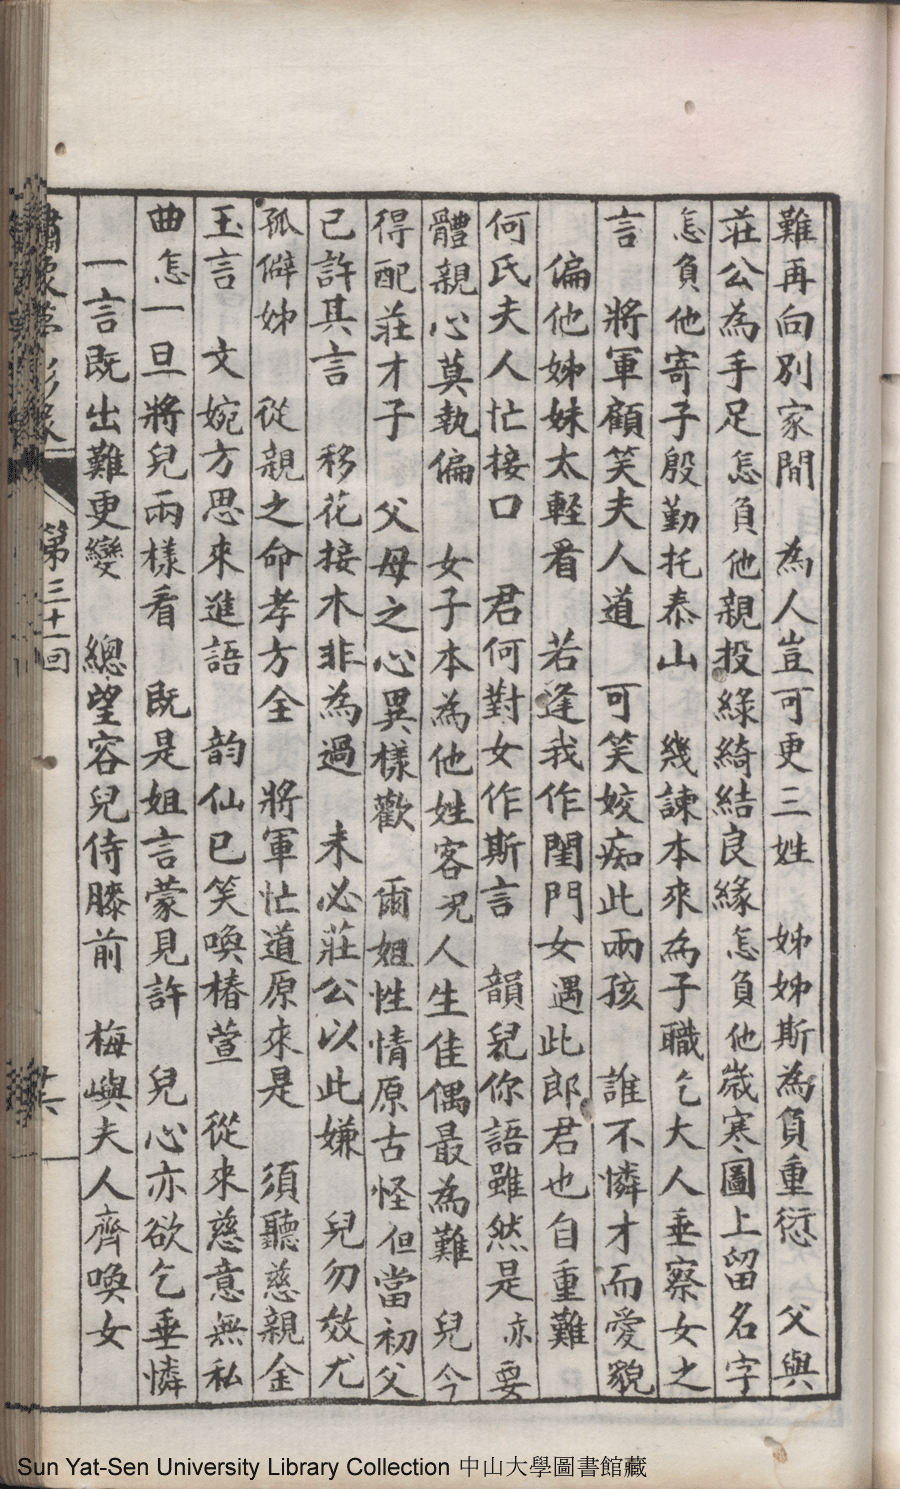 難再向別家間　為人豈可更三姓　姊姊斯為負重愆　父與
莊公為手足　怎負他親投綠綺結良緣　怎負他歲寒圖上留名字
怎負他寄子殷勤托泰山　幾諫本來為子職　乞大人垂察女之
言　將軍顧笑夫人道　可笑姣痴此兩孩　誰不憐才而愛貌
偏他姊妹太輕看　若逢我作閨門女　遇此郎君也自重難
何氏夫人忙接口　君何對女作斯言　韻兒你語雖然是　亦要
體親心莫執偏　女子本為他姓客　況人生佳偶最為難　兒今
得配莊才子　父母之心異樣歡　爾姐性情原古怪　但當初父
已許其言　移花接木非為過　未必莊公以此嫌　兒勿效尤
孤僻姊　從親之命孝方全　將軍忙道原來是　須聽慈親金
玉言　文婉方思來進語　韵仙已笑喚椿萱　從來慈意無私
曲　怎一旦將兒兩樣看　既是姐言蒙見許　兒心亦欲乞垂憐
一言既出難更變　總望容兒侍膝前　梅嶼夫人齊喚女
第三十一回
Sun Yat-Sen University Library Collection 中山大學圖書館藏